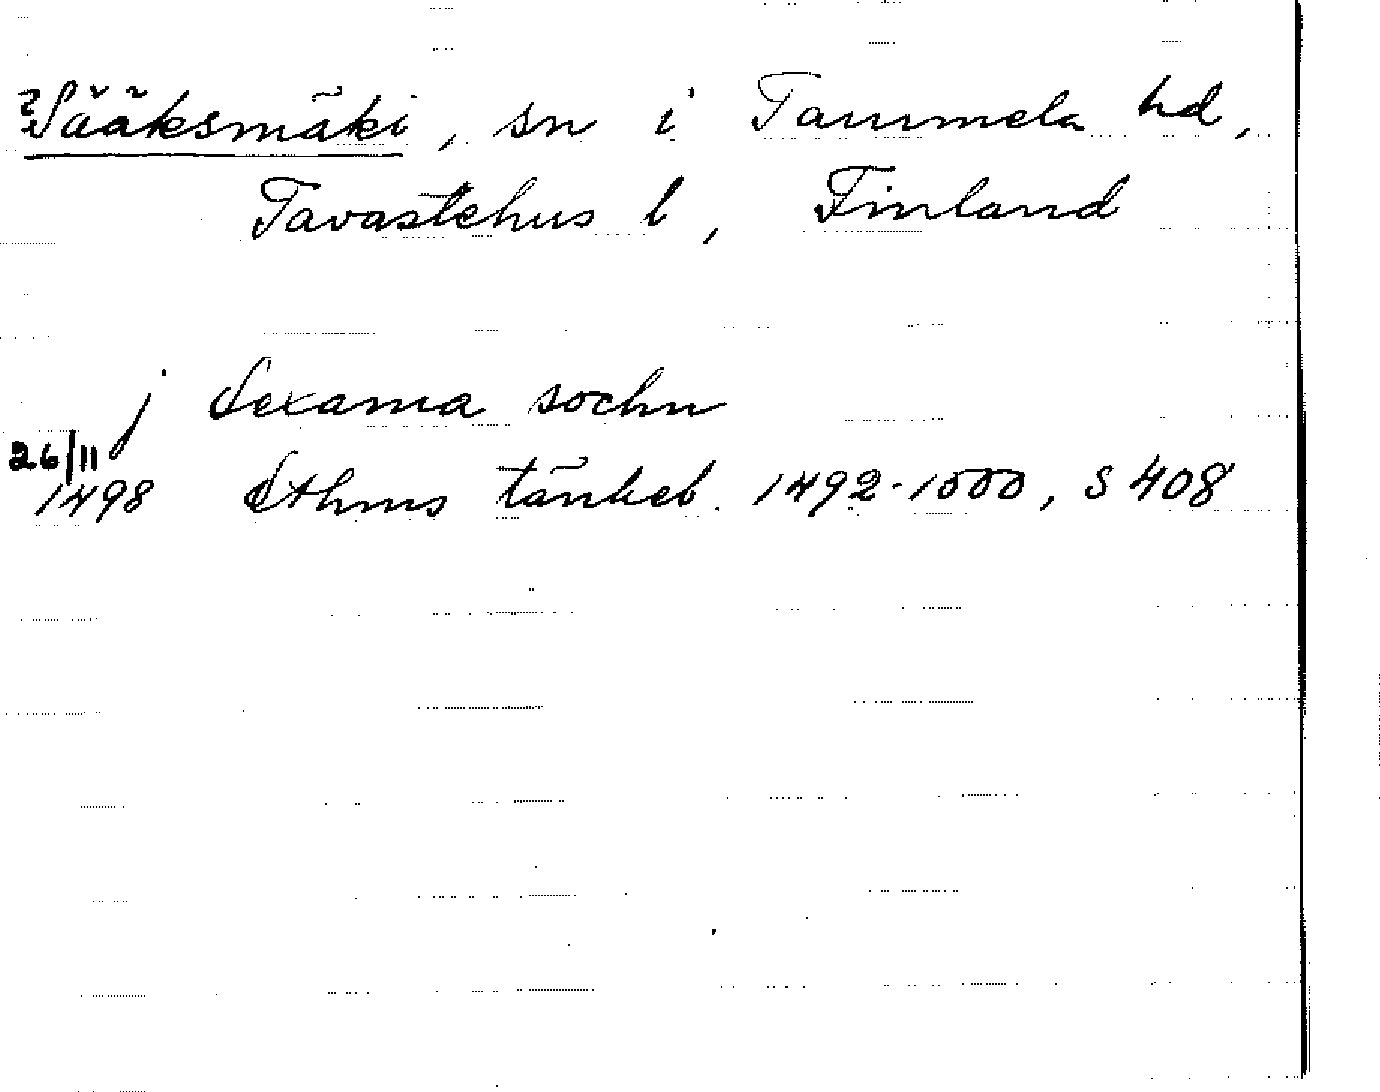 ?Sääksmäki, sn i Tammela hd,
Tavastehus l, Finland
j Sexama sochn
26/11
1498 Sthms tänkeb. 1492-1500, s 408